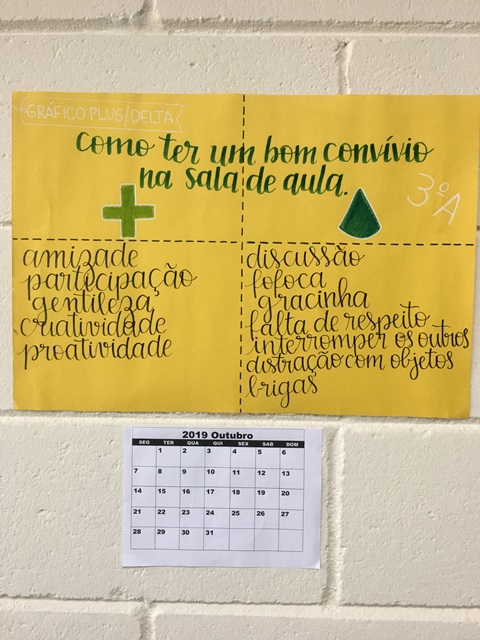 GRÁFICO PLUS/DELTA
como ter um bom convívio
na sala de aula.
3ºA
amizade
participação
gentileza
criatividade
proatividade
discussão
fofoca
gracinha
falta de respeito
interromper os outros
distração com objetos
brigas
2019 Outubro
SEG TER QUA QUI SEX SAB DOM
1 2 3 4 5 6
7 8 9 10 11 12 13
14 15 16 17 18 19 20
21 22 23 24 25 26 27
28 29 30 31